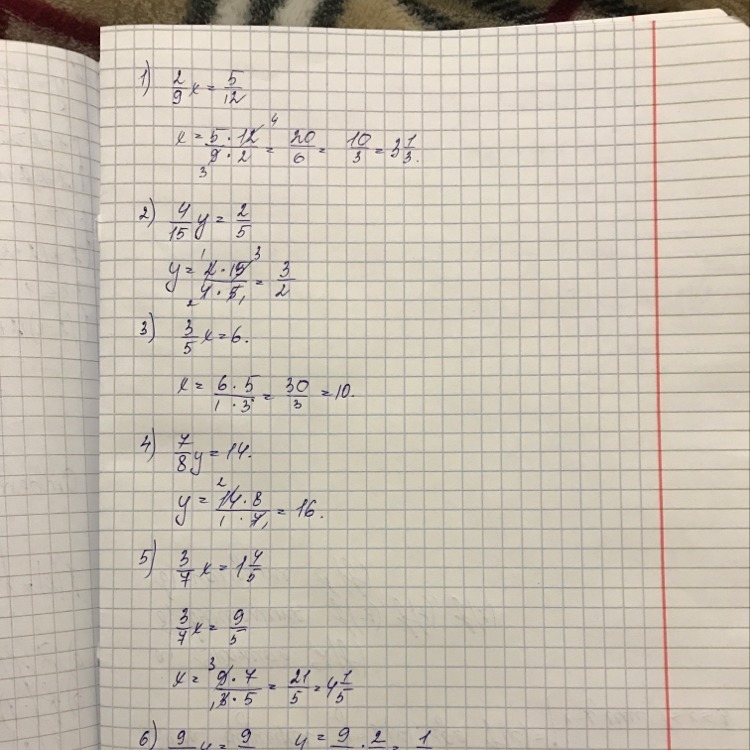 1) 2/9 x = 5/12
x = 5 · 12 4 / 3 9 · 2 = 20/6 = 10/3 = 3 1/3.
2) 4/15 y = 2/5
y = 1 2 · 15 3 / 2 4 · 5 1 = 3/2
3) 3/5 x = 6.
x = 6 · 5 / 1 · 3 = 30/3 = 10.
4) 7/8 y = 14.
y = 2 14 · 8 / 1 · 7 1 = 16.
5) 3/7 x = 1 4/5
3/7 x = 9/5
x = 3 9 · 7 / 1 3 · 5 = 21/5 = 4 1/5